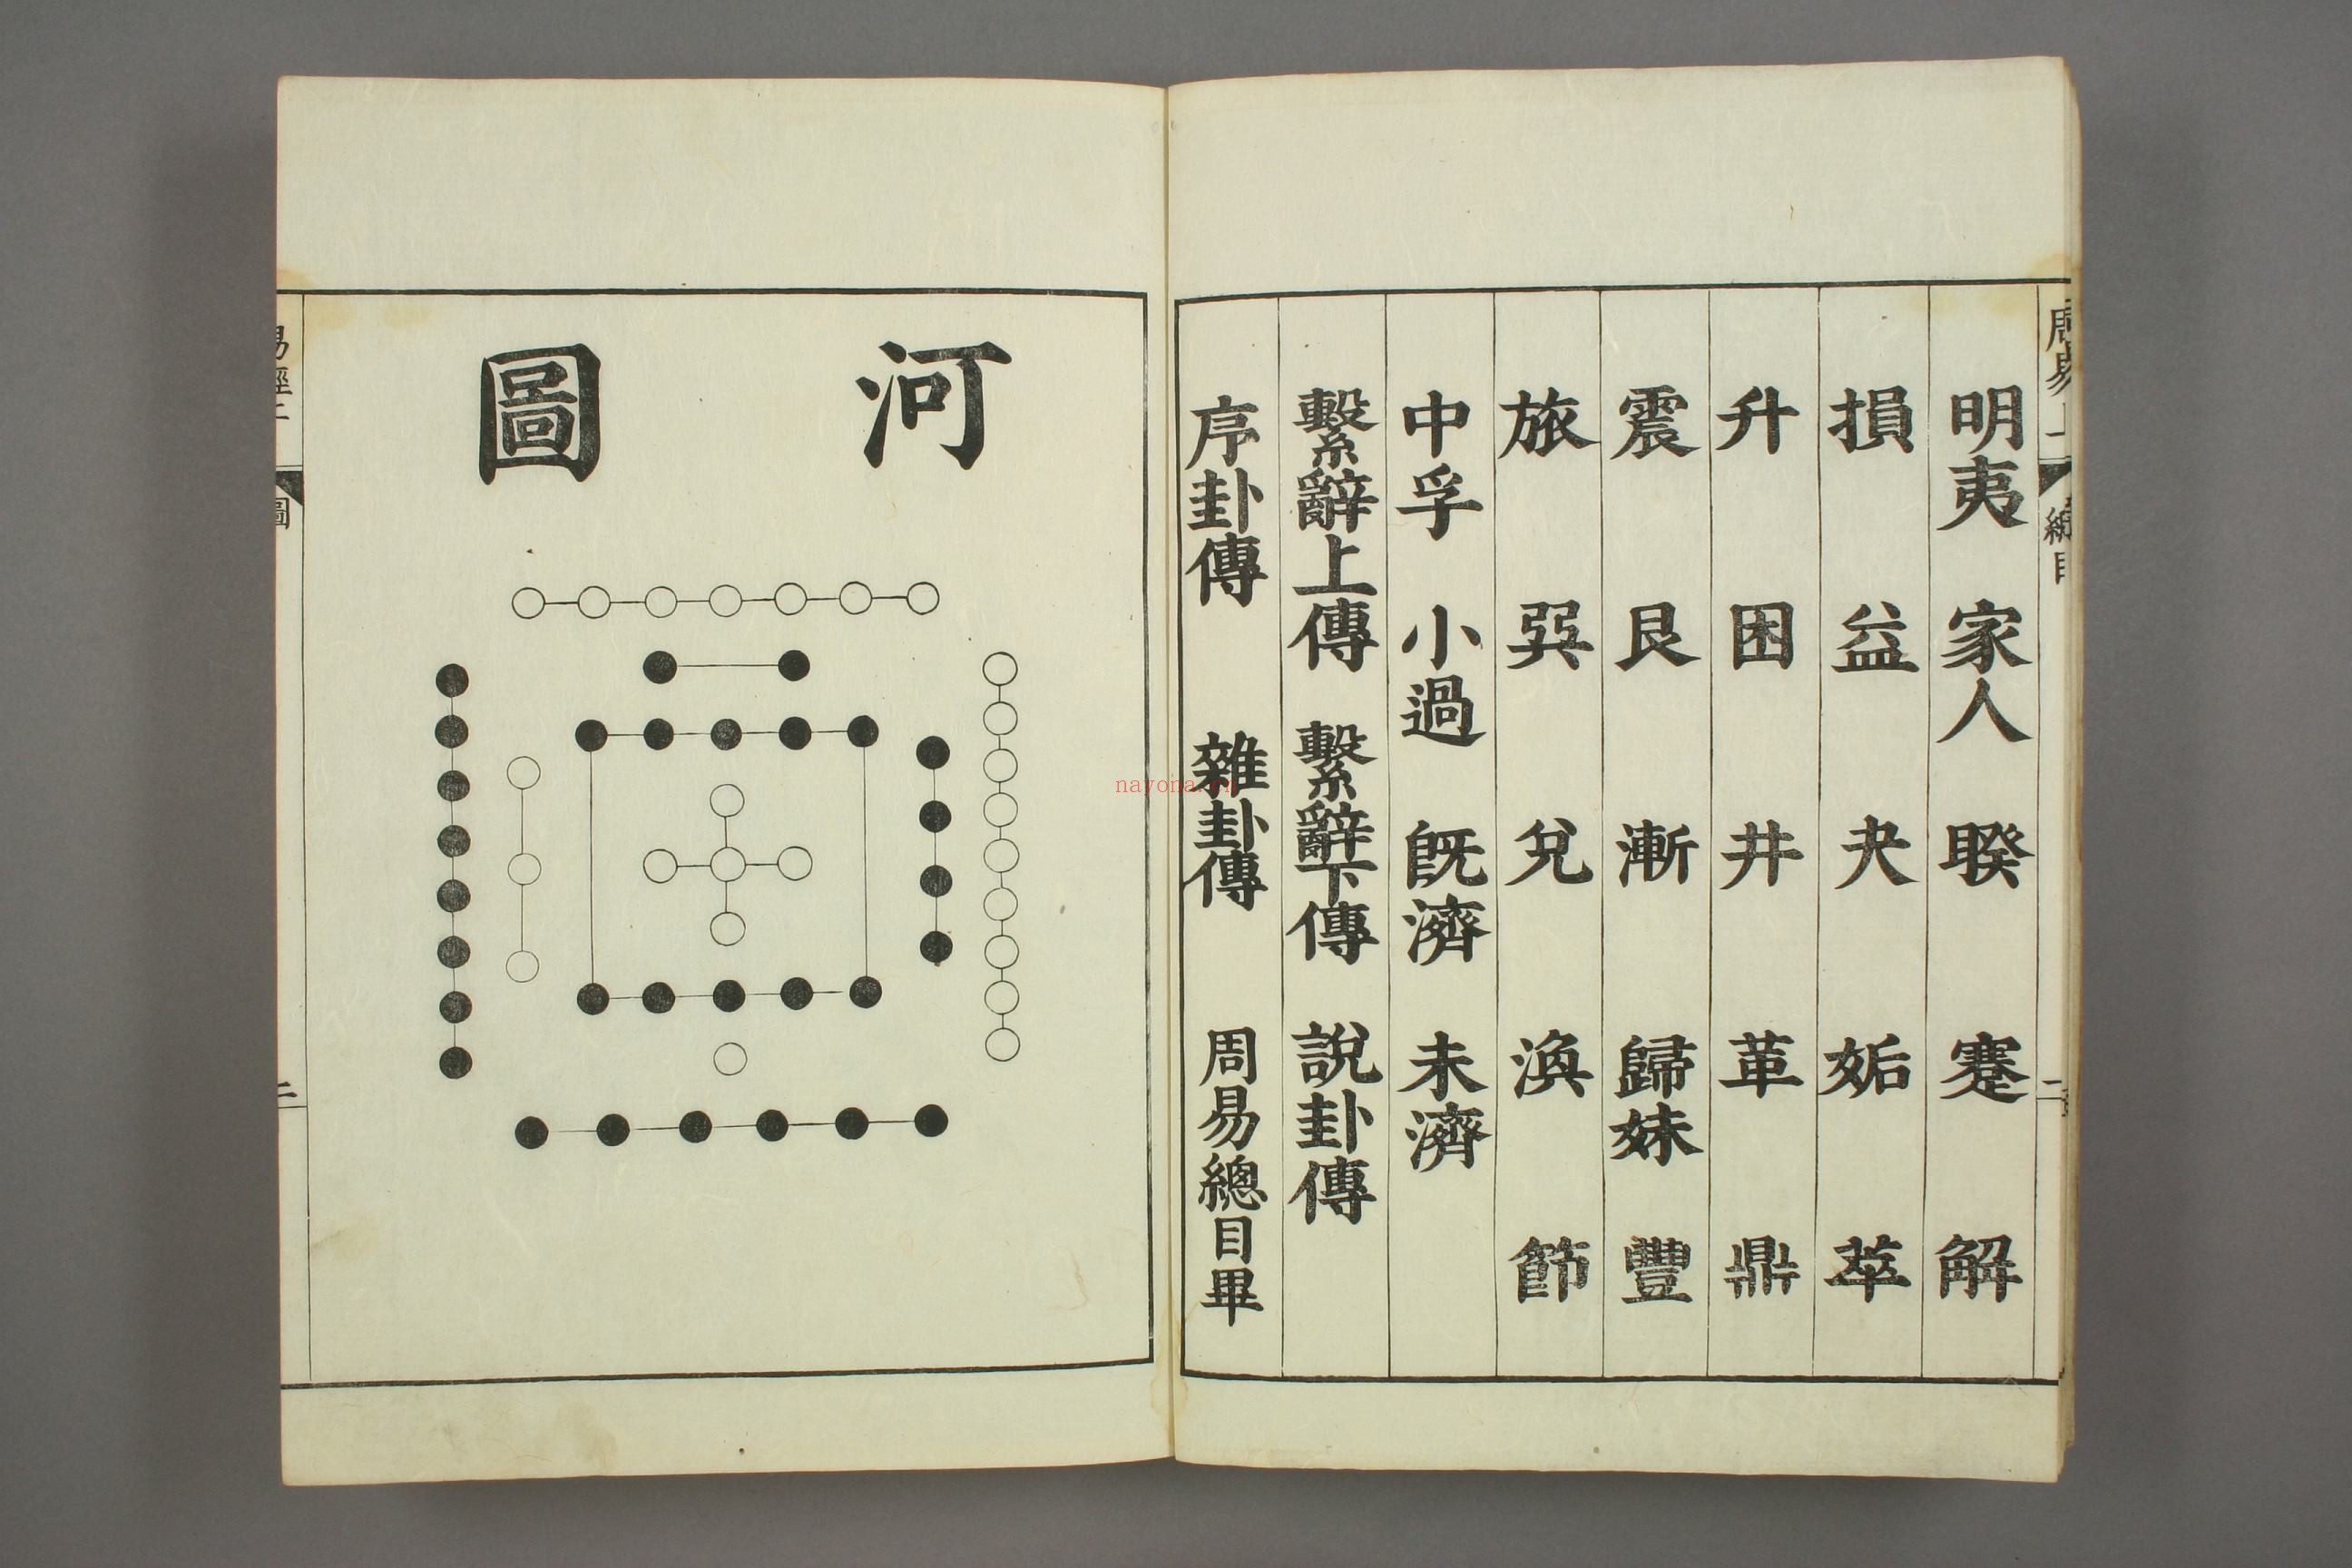 明夷 家人 睽 蹇 解
損 益 夬 姤 萃
升 困 井 革 鼎
震 艮 漸 歸妹 豐
旅 巽 兌 渙 節
中孚 小過 旣濟 未濟
繫辭上傳 繫辭下傳 說卦傳
序卦傳 雜卦傳 周易總目畢
河圖
易經二
圖
二